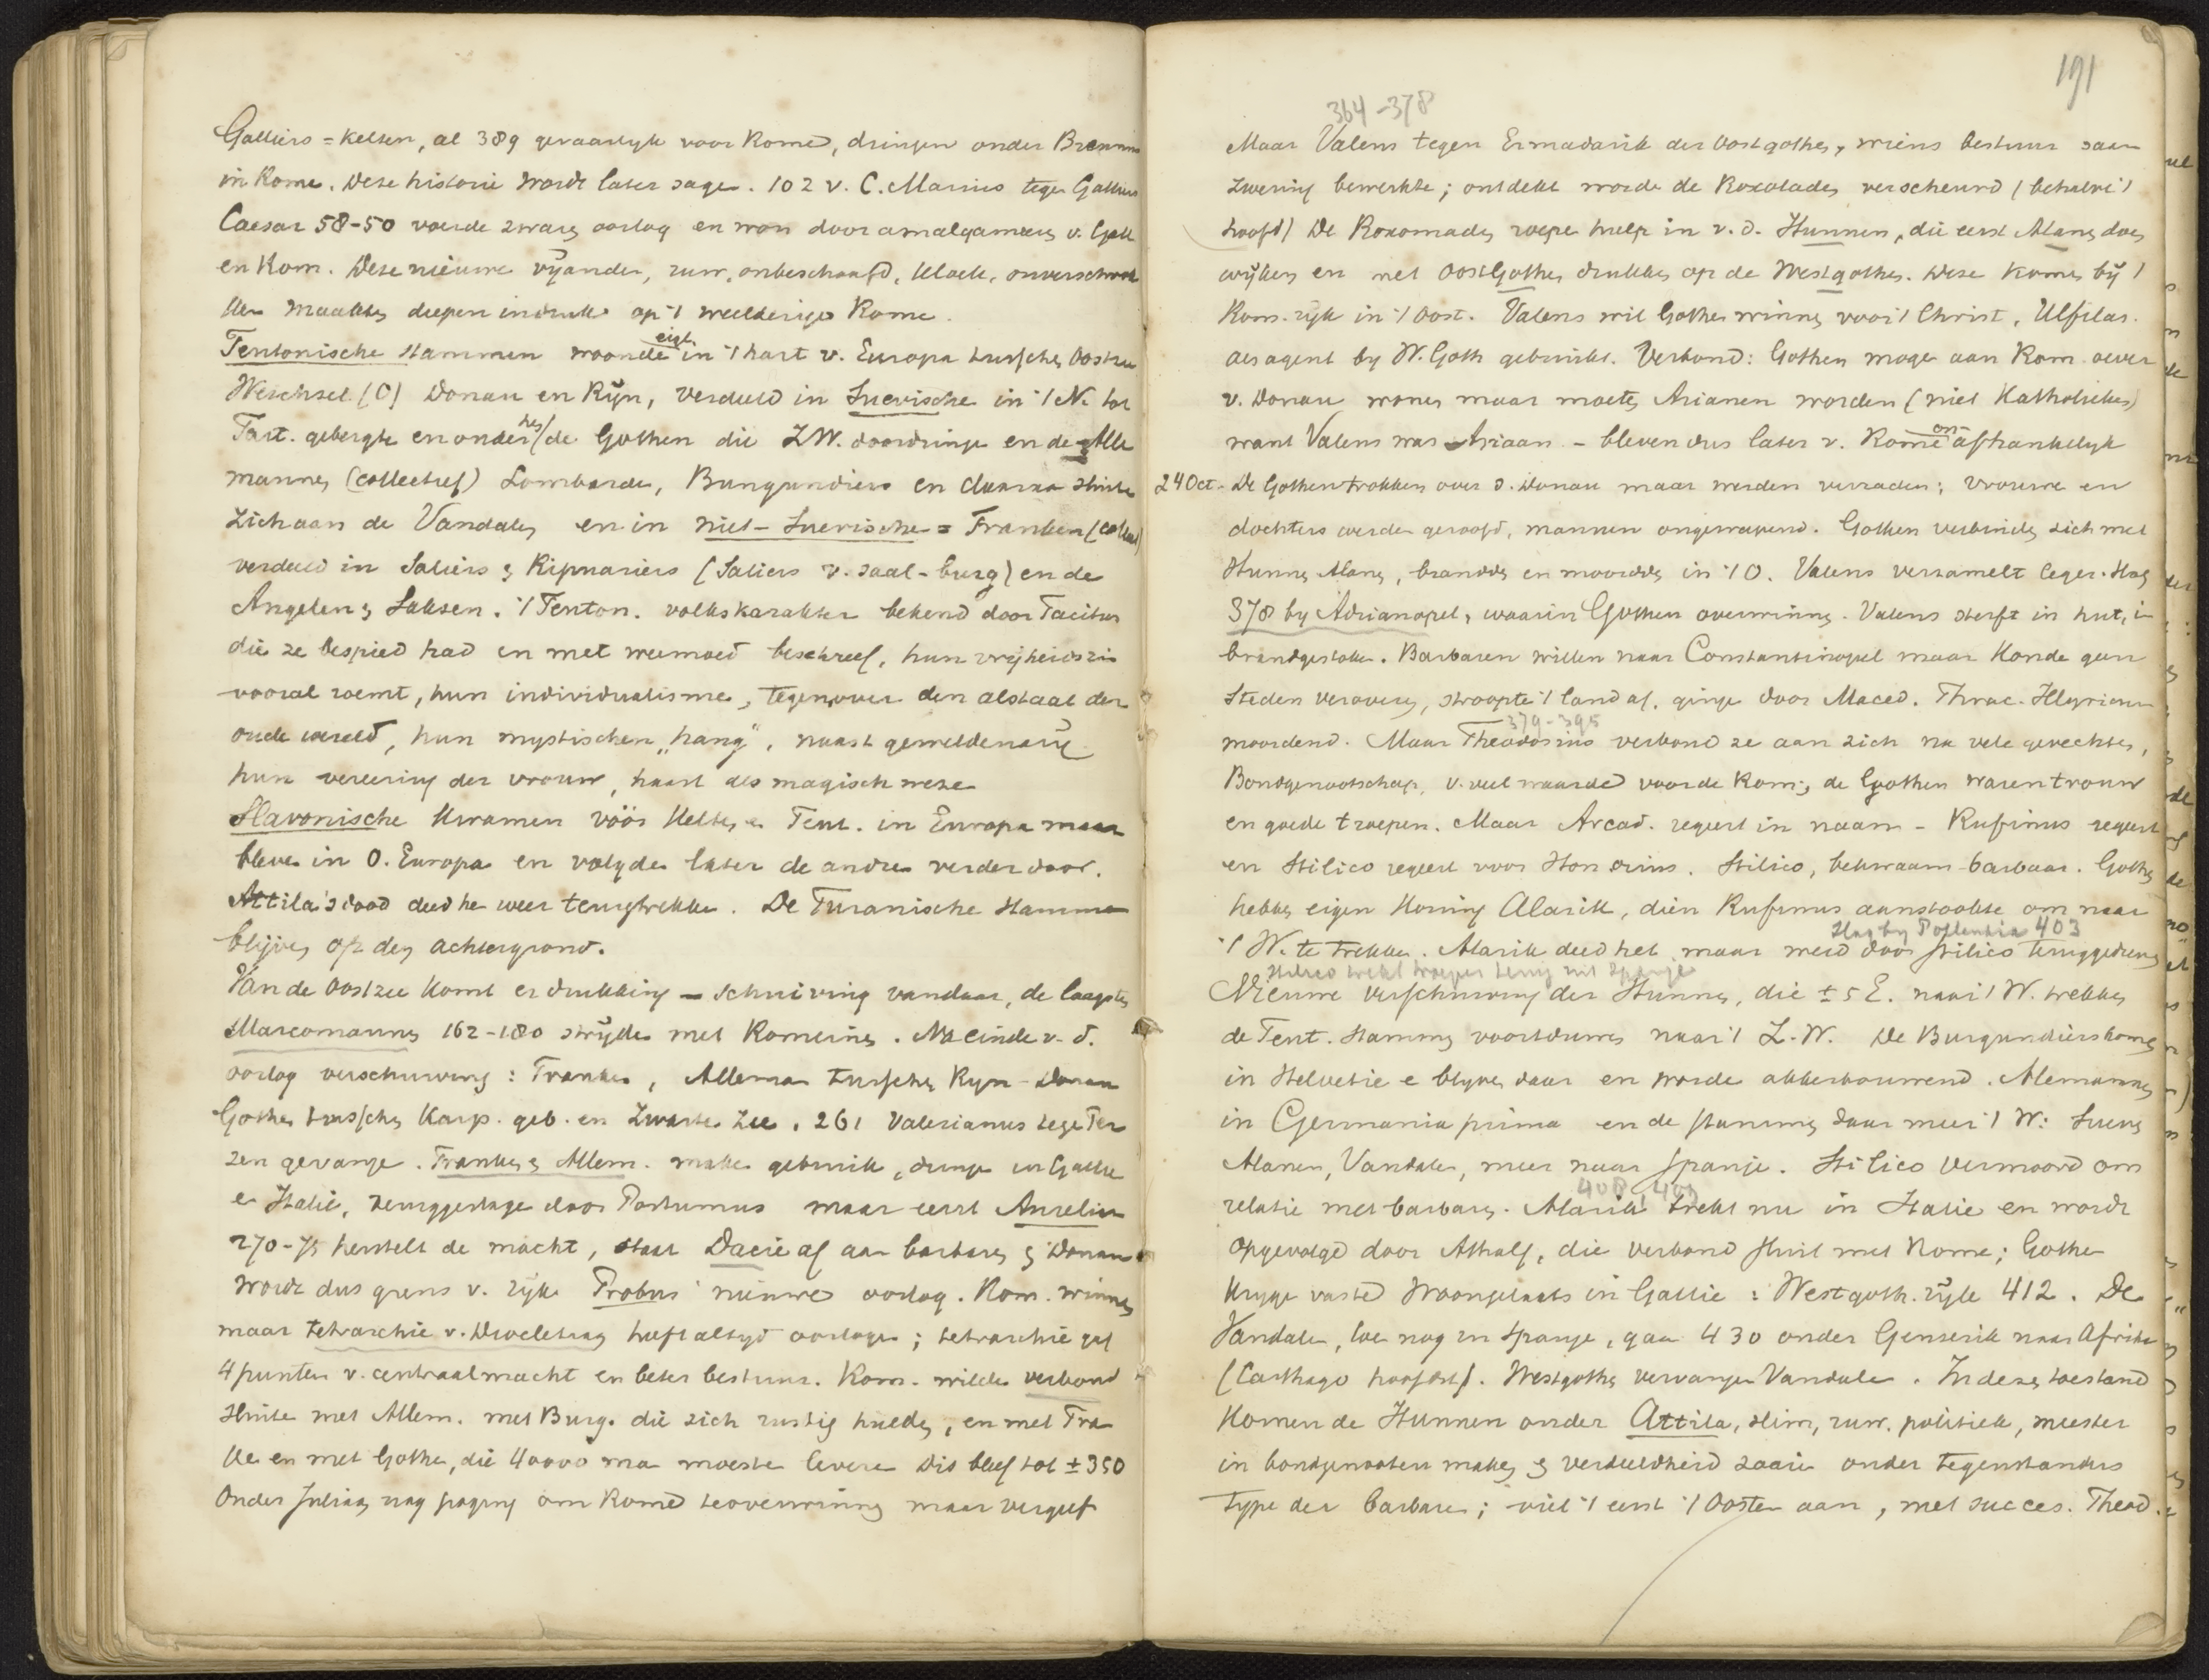 Galliërs = Kelten, al 389 gevaarlyk voor Rome, dringen onder Brennus
in Rome. Deze historie wordt later sage. 102 v. C. Marius tege Galliërs
Caesar 58-50 voerde zware oorlog en won door amalgameeren v. Gall
en Rom. Deze nieuwe vyanden, ruw, onbeschaafd, kloek, onverschrok
ken maakten diepen indruk op 't weelderige Rome.
Teutonische stammen woonde eigl. in 't hart v. Europa tusschen Oostzee
Weichsel (O) Donau en Ryn, verdeeld in Suevische in 't N. tot
Tart. gebergte en onder hen / de Gothen die Z.W. doordringe en de Alle
mannen (collectief) Lombarde, Bungundiers en daaraan sluite
zich aan de Vandalen en in niet-Suevische = Franken (collect)
verdeeld in Saliërs & Ripuariers (Saliers v. Saal-burg) en de
Angelen & Saksen. 't Teuton. volkskarakter bekend door Tacitus
die ze bespied had en met weemoed beschreef, hun vrijheidszin
vooral roemt, hun individualisme, tegenover den alstaat der
oude wereld, hun mystischen "hang", naast
hun vereering der vrouw, haast als magisch wezen
Slavonische kwamen vóór Kelten en Teut. in Europa maar
bleven in O. Europa en volgden later de andren verder door.
Attila's dood deed hen weer terugtrekken. De Turanische stammen
blijven op den achtergrond.
Van de Oostzee komt er drukking - schuiving vandaar, de laagste
Marcomannen 162-180 stryden met Romeinen. Na einde v. d.
oorlog verschuiving: Franken, Alleman tusschen Ryn - Donau
Gothen tusschen Karp. geb. en Zwarte Zee. 261 Valerianus tege Per
zen gevange. Franken & Allem. maken gebruik, dringe in Gallie
en Italië, teruggeslage door Postumus maar eerst Aurelian
270-75 herstelt de macht, staat Dacie af aan barbaren & Donau
wordt dus grens v. ryk Probus nieuwe oorlog. Rom. winnen
maar tetrarchie v. Diocletiaan heeft altyd oorlogen; tetrarchie gaf
4 punten v. centraalmacht en beter bestuur. Rom. wilden verbond
sluiten met Allem. met Burg. die zich rustig hielden, en met Fra
ken en met Gothen, die 40000 man moesten leveren Dit bleef tot ± 350
Onder Juliaan nog poging om Rome te overwinnen maar vergeefs
191
364-378
Maar Valens tegen Ermadarik der Oostgothen, wiens bestuur saam
zwering bewerkte; ontdekt worde de Roxoladen verscheurd (behalve 't
hoofd) De Roxomaden roepe hulp in v. d. Hunnen, die eerst Alanen doen
wijken en met Oostgothen drukken op de Westgothen. Deze komen bij 't
Rom. ryk in 't Oost. Valens wil Gothen winnen voor 't Christ, Ulfilas
als agent by W. Goth gebruikt. Verbond: Gothen mogen aan Rom. oever
v. Donau wonen maar moeten Arianen worden (niet Katholieken)
want Valens was Ariaan - bleven dus later v. Rome onafhankelyk
24 Oct. De Gothen trokken over d. Donau maar werden verraden; vrouwen en
dochters werden geroofd, mannen ongewapend. Gothen verbinden zich met
Hunnen Alanen, branden en moorden in 't O. Valens verzamelt leger. Slag
378 by Adrianopel, waarin Gothen overwinnen. Valens sterft in hut, in
brand gestoken. Barbaren willen naar Constantinopel maar konden geen
steden veroveren, stroopte 't land af, ginge door Maced. Thrac. Illyricum
379-395
moordend. Maar Theodosius verbond ze aan zich na vele gevechten,
Bondgenootschap v. veel waarde voor de Rom; de Gothen waren trouw
en goede troepen. Maar Arcad. regeert in naam - Rufinus regeert
en Stilico regeert voor Honorius. Stilico, bekwaam barbaar. Gothen
hebben eigen koning Alarik, dien Rufinus aanstookte om naar
Slag by Pollentia 403
't W. te trekken. Alarik deed het maar werd door Stilico teruggedrong
Stilico trekt troepen terug uit Spanje
Nieuwe verschuiving der Hunnen, die ± 5 E. naar 't W. trekken
de Teut. stammen voortduwen naar 't Z.W. De Burgundiers komen
in Helvetie e blyven daar en worde akkerbouwend. Alemannen
in Germania prima en de stammen daar meer 't W: Sueven
Alanen, Vandalen, meer naar Spanje. Stilico vermoord om
408 409
relatie met barbaren. Alarik trekt nu in Italie en wordt
opgevolgd door Athalf, die verbond sluit met Rome; Gothen
krygen vaste woonplaats in Gallie: Westgoth. ryk 412. De
Vandalen, toe nog in Spanje, gaan 430 onder Genserik naar Afrika
(Carthago hoofdst). Westgothen vervangen Vandalen. In dezen toestand
komen de Hunnen onder Attila, slim, ruw, politiek, meester
in bondgenooten maken & verdeeldheid zaaien onder tegenstanders
type der barbaren; viel 't eerst 't Oosten aan, met succes. Theod.